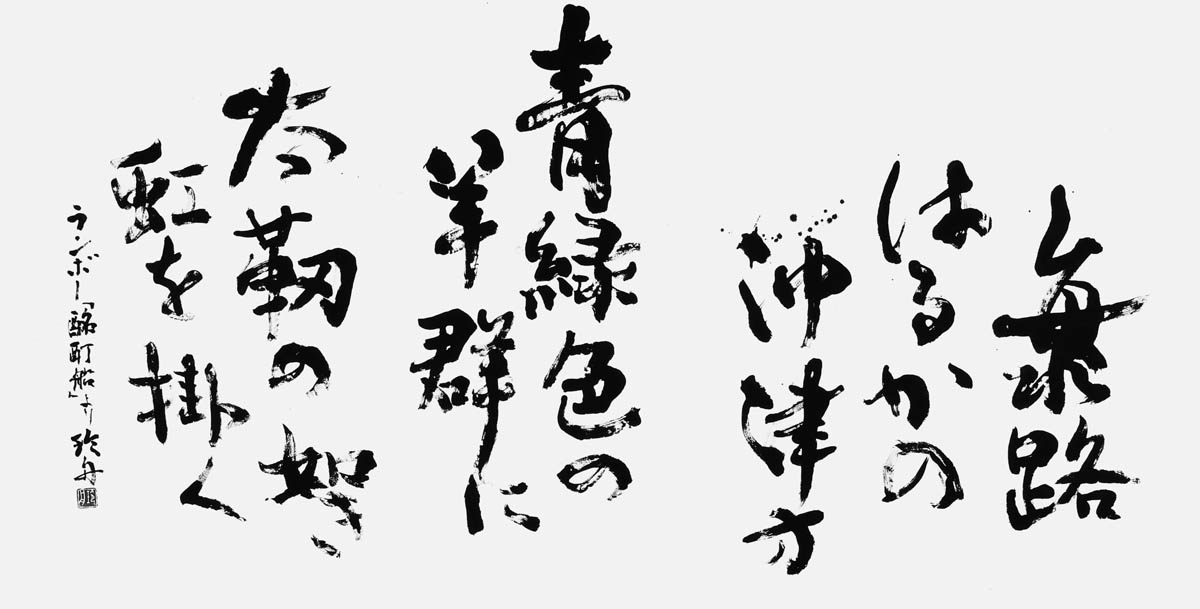 海路
はるかの
沖津方
青緑色の
羊群に
太靭の如き
虹を掛く
ランボー「酩酊船」より